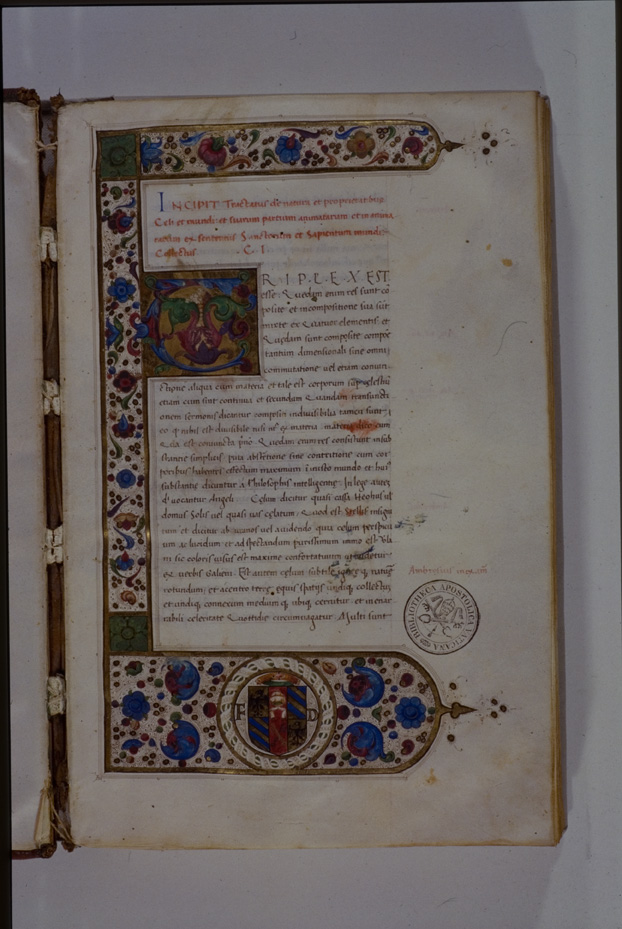 INCIPIT Tractatus de natura et proprietatibus
Celi et mundi: et suarum partium animatarum et in anima
tarum ex sententiis Sanctorum et Sapientum mundi:
C. I.
T R I P L E X EST
esse Quedam enim res sunt cō
posite et incompositione sua sūt
mixte ex Quatuor elementis. et
Quedam sunt composite compōe
tantum dimensionali sine omni
commutatione vel etiam coniun
ctione aliqua cum materia et tale est corporum suprcelestiū
etiam cum sint continua et secundum Quandam transūcti
onem sermonis dicantur composita indivisibilia tamen sunt:
eo q nihil est divisibile nisi materia
est coniuncta Quedam enim res consistunt in sub
stantiis simplicis puta abstctione sine contentione cum cor
poribus habentes effectum maximum ī isto mundo et hui9
substantie dicuntur a Philosophis intelligentie. In lege autez
dī vocantur Angeli Celum dicitur quasi casa Helios ul
domus Solis vel quasi vas celatum: Quod est Stellis insigni
tum et dicitur vel a videndo quia celum perspicu
um lucidum et ad spectandum purissimum immo est
in sic coloris visus est maxime confortativum
ex verbis Galieni. Est autem celum subtile igneq nature
rotundum: et a centro terre equis spatiis undiq collectus
et undiq connexum mediumq ubiq cernitur et inenar
rabili celeritate Quottidie circumvagatur. Multi sunt
Ambrosius
BIBLIOTHECA APOSTOLICA VATICANA
F D